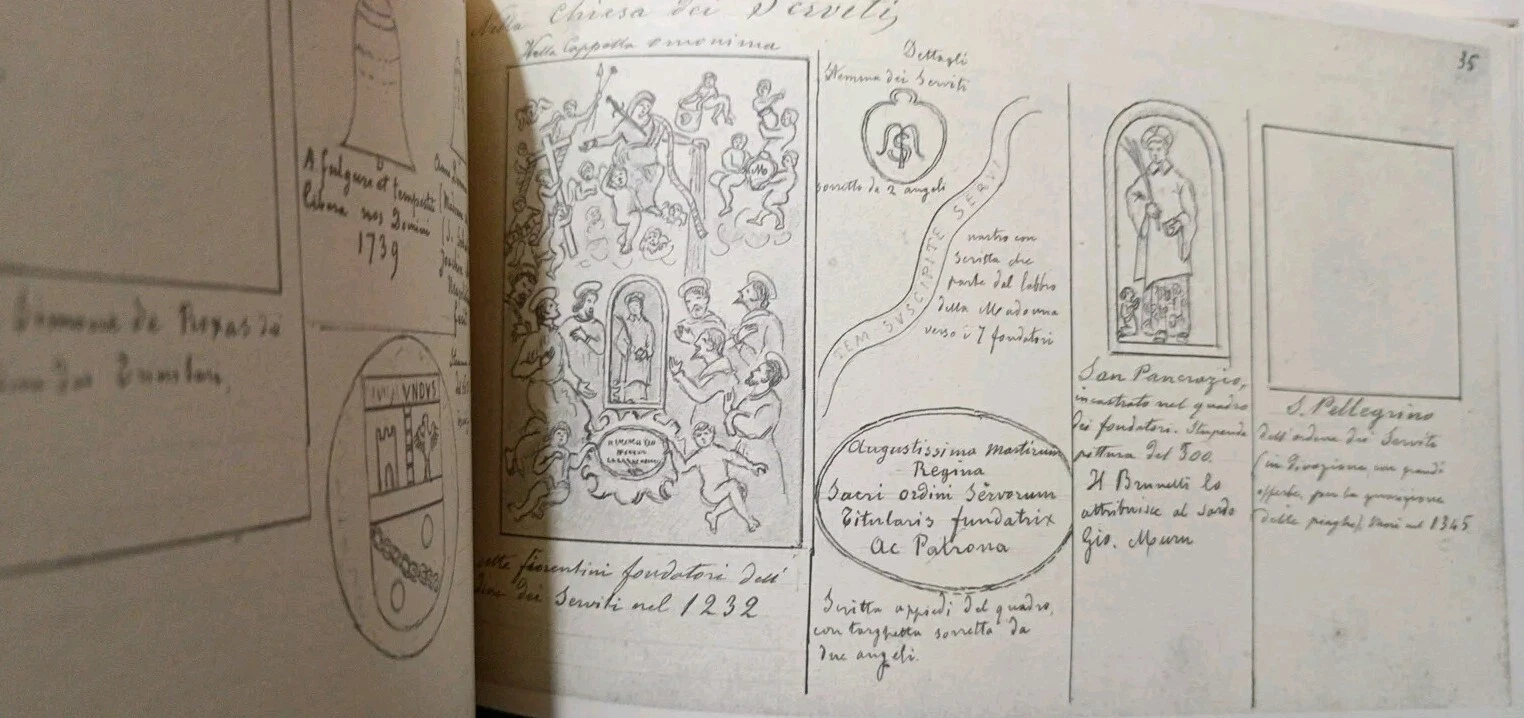 A fulgure et tempestate
libera nos Domini
1739
Simone de Roxas
VNDVS
Nella Chiesa dei Serviti,
Nella Cappella omonima
35
fiorentini fondatori dell'
dei Serviti nel 1232
Dettagli
Stemma dei Serviti
sorretto da 2 angeli
ITEM SVSCIPITE SERVI
nastro con
scritta che
parte dal labbro
della Madonna
verso i 7 fondatori
Augustissima Martirum
Regina
Sacri ordini Servorum
Titularis fundatrix
Ac Patrona
Scritta appiedi del quadro,
con targhetta sorretta da
due angeli.
San Pancrazio,
incastrato nel quadro
dei fondatori. Stupenda
pittura del 500.
Il Brunelli lo
attribuisce al sardo
Gio. Muru
S. Pellegrino
dell'ordine dei Serviti
(in divozione, con grandi
offerte, per la guarigione
delle piaghe). Morì nel 1345